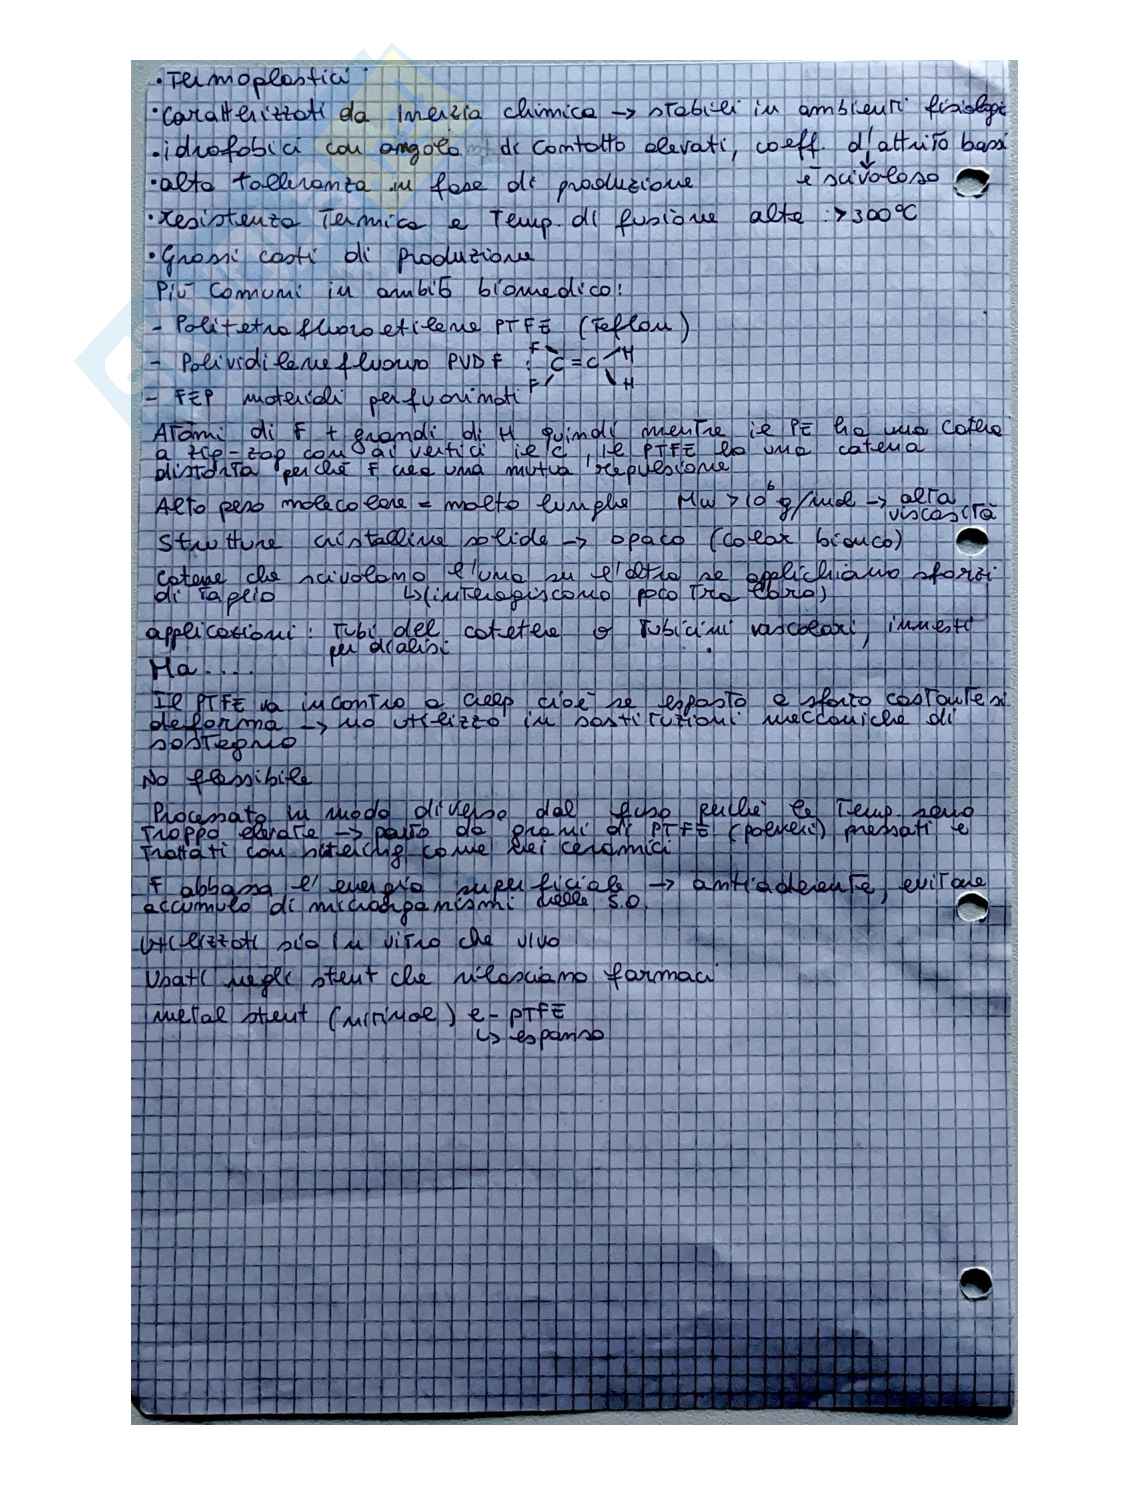 • Termoplastici
• caratterizzati da inerzia chimica → stabili in ambienti fisiologi
• idrofobici con angolo di contatto elevati, coeff. d'attrito bassi
• alta tolleranza in fase di produzione è scivoloso
• resistenza termica e Temp. di fusione alte :>300°C
• Grossi costi di produzione
Più comuni in ambito biomedico:
- Politetrafluoroetilene PTFE (Teflon)
- Polividilenefluouro PVDF : F F C = C H H
- FEP materiali perfuorinati
Atomi di F + grandi di H quindi mentre il PE ha una catena
a zig-zag con ai vertici il C, il PTFE ha una catena
distorta perché F crea una mutua repulsione
Alto peso molecolare = molto lunghe Mw > 10⁶ g/mol → alta viscosità
Strutture cristalline solide → opaco (color bianco)
Catene che scivolano l'una su l'altra se applichiamo sforzi
di taglio ↳(interagiscono poco tra loro)
applicazioni: Tubi del catetere o Tubicini vascolari, innesti
per dialisi
Ma....
Il PTFE va incontro a creep cioè se esposto a sforzo costante si
deforma → no utilizzo in sostituzioni meccaniche di
sostegno
No flessibile
Processato in modo diverso dal fuso perché le Temp. sono
troppo elevate → parto da grani di PTFE (polveri) pressati e
trattati con come nei ceramici
F abbassa l'energia superficiale → antiaderente, evitare
accumulo di microrganismi nelle S.O.
Utilizzati sia in vitro che vivo
Usati negli stent che rilasciano farmaci
metal stent (nitinol) e-PTFE
↳ espanso